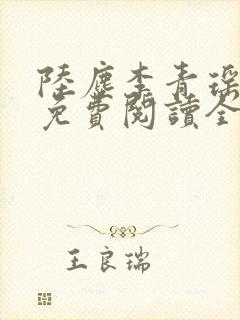 陸塵李青瑤
免費閱讀全
王良瑞